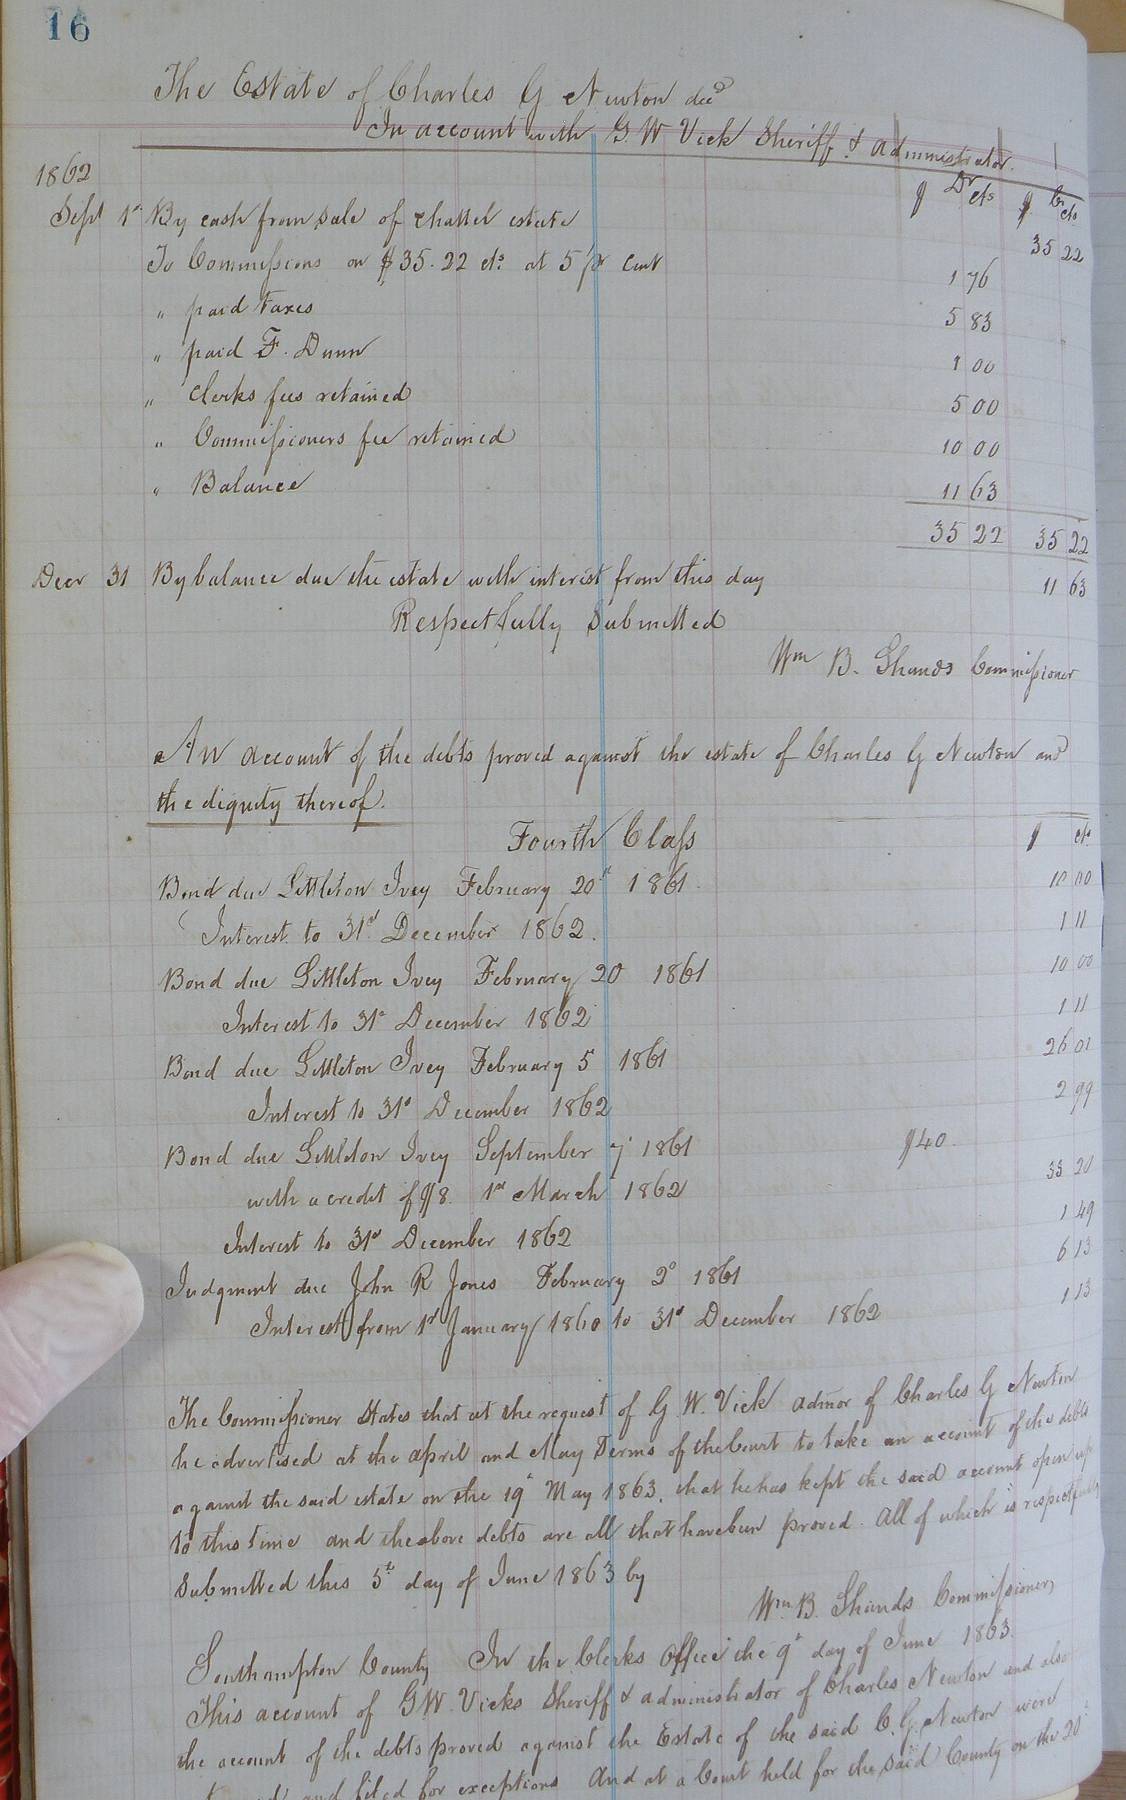 16
The Estate of Charles G Newton decd
In account with G. W Vick Sheriff & administrator.
1862
$ Dr cts $ Cr cts
Sept 1st By cash from sale of chattel estate 35 22
To Commissions on $35.22 cts at 5 pr cent 1 76
" paid taxes 5 83
" paid F. Dunn 1 00
" Clerks fees retained 5 00
" Commissioners fee retained 10 00
" Balance 11 63
35 22 35 22
Decr 31 By balance due the estate with interest from this day 11 63
Respectfully Submitted
Wm B. Shands Commissioner
An account of the debts proved against the estate of Charles G Newton and
the dignity thereof.
Fourth Class $ cts
Bond due Littleton Ivey February 20th 1861. 10 00
Interest to 31st December 1862. 1 11
Bond due Littleton Ivey February 20 1861 10 00
Interest to 31st December 1862 1 11
Bond due Littleton Ivey February 5 1861 26 01
Interest to 31st December 1862 2 99
Bond due Littleton Ivey September 7 1861 $40.
with a credit of $8. 1st March 1862 33 20
Interest to 31st December 1862 1 49
Judgment due John R Jones February 2d 1861 6 13
Interest from 1st January 1860 to 31st December 1862 1 13
The Commissioner States that at the request of G. W. Vick admor of Charles G Newton
he advertised at the April and May Terms of the Court to take an account of the debts
against the said estate on the 19th May 1863, that he has kept the said account open up
to this time and the above debts are all that have been proved. All of which is respectfully
Submitted this 5th day of June 1863 by
Wm B. Shands Commissioner,
Southampton County In the Clerks Office the 9th day of June 1863.
This account of G. W. Vicks Sheriff & administrator of Charles Newton and also
the account of the debts proved against the Estate of the said C. G. Newton were
and filed for exceptions And at a Court held for the said County on the 20